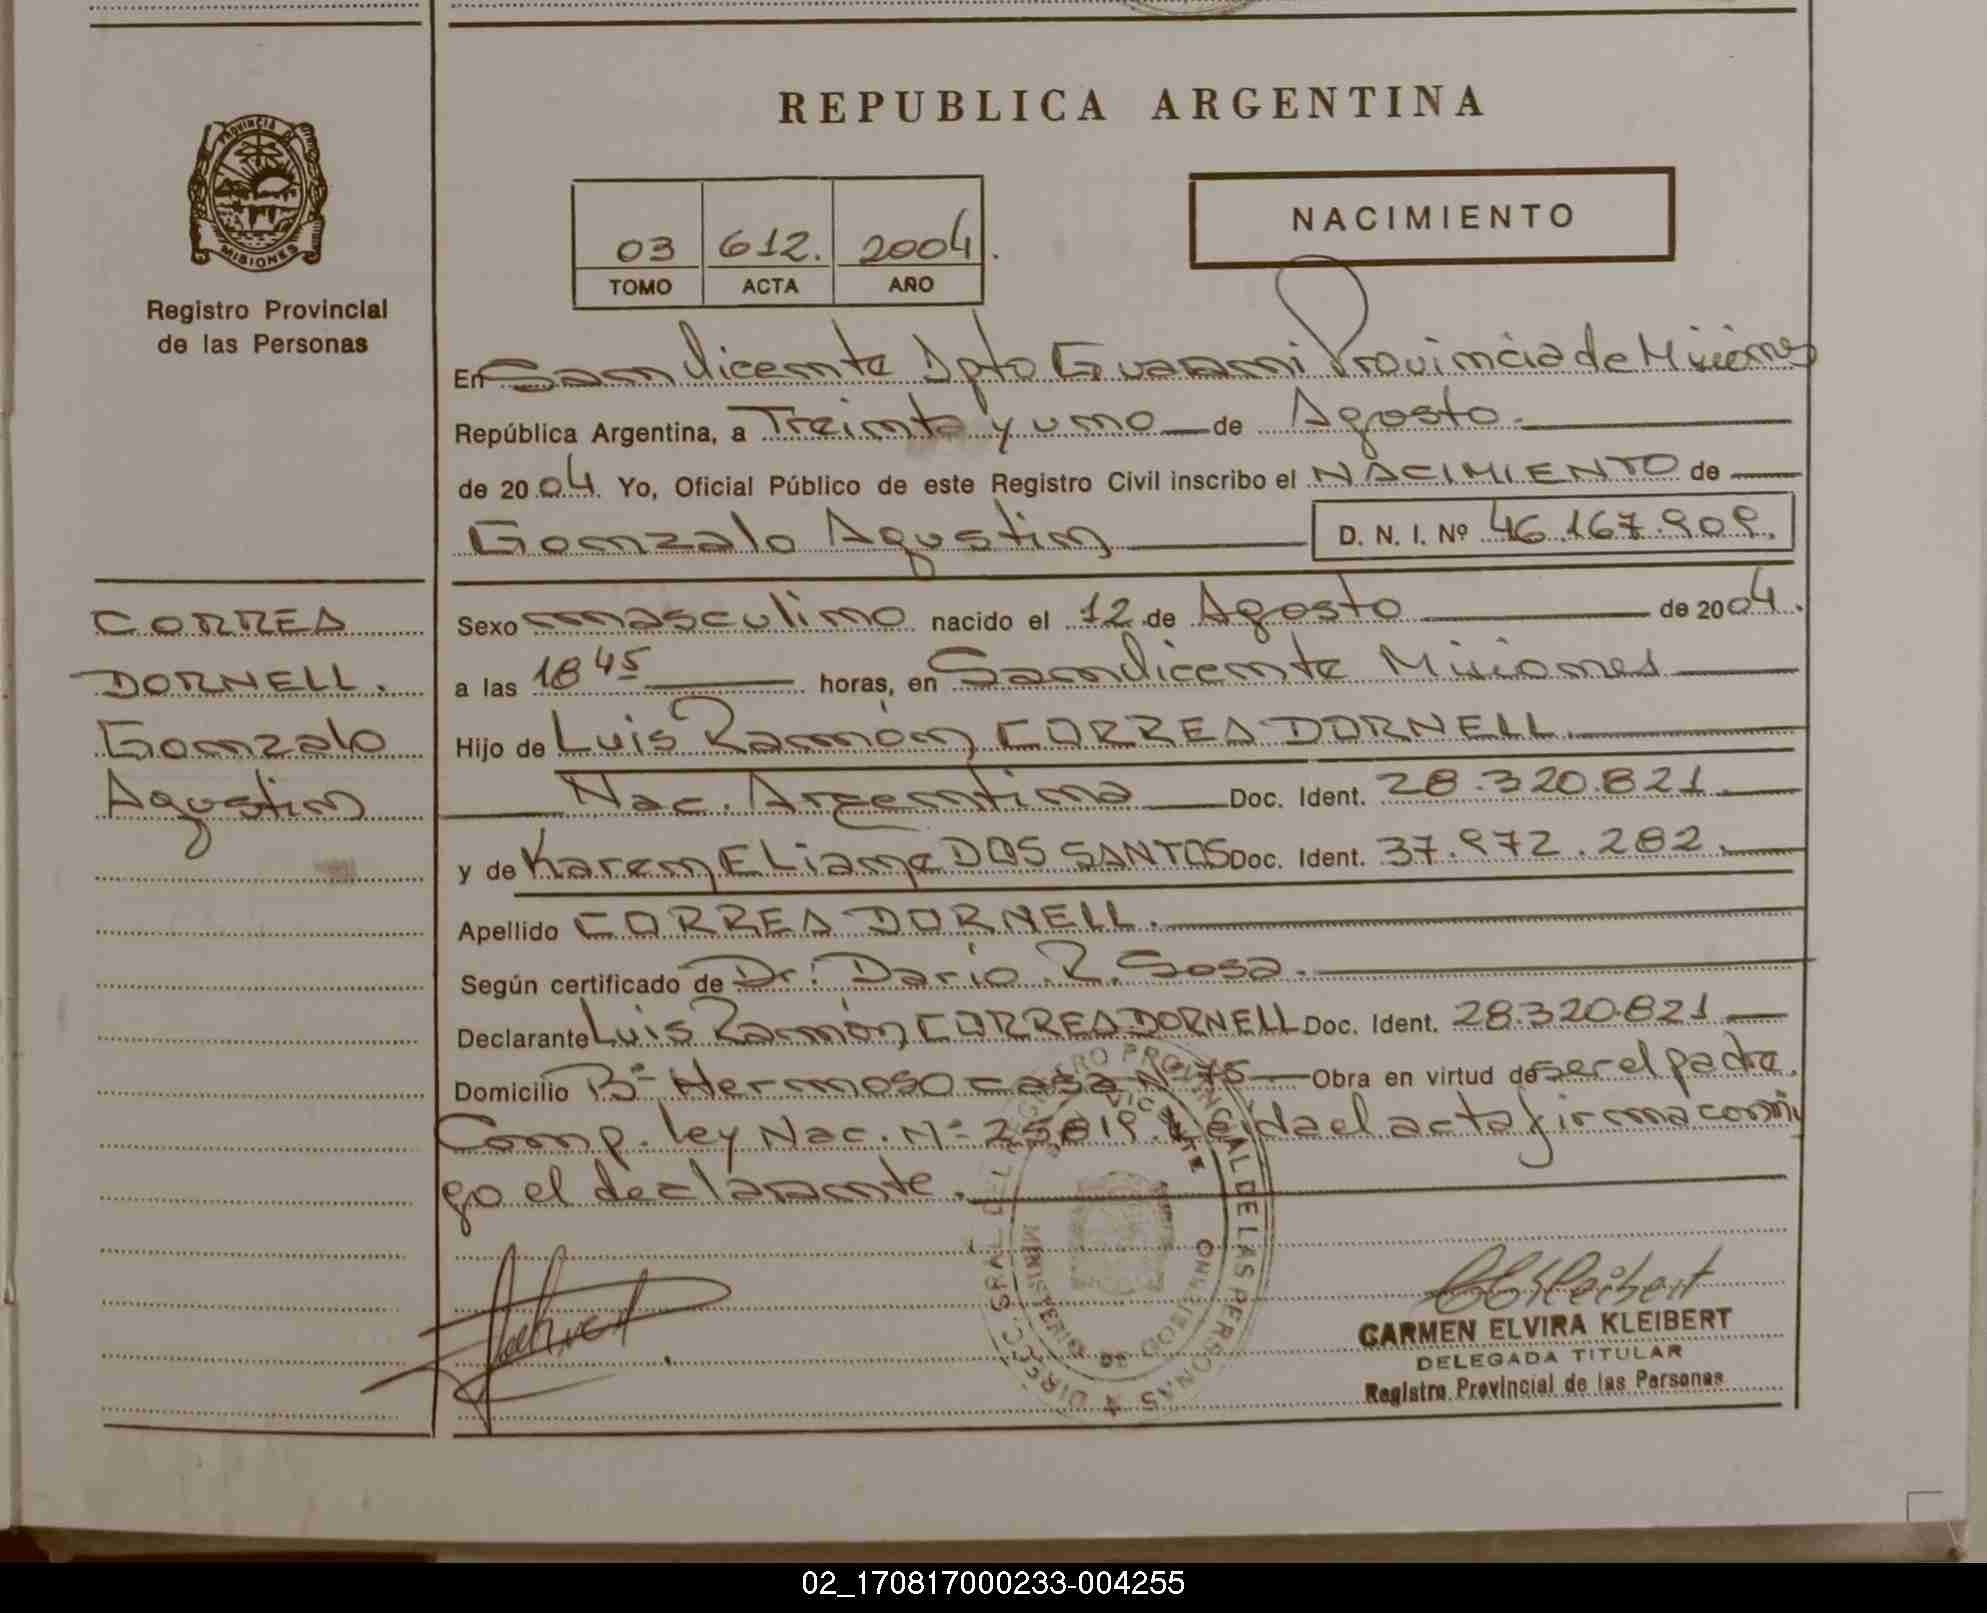 REPUBLICA ARGENTINA
PROVINCIA DE
MISIONES
Registro Provincial
de las Personas
NACIMIENTO
03 612. 2004.
TOMO ACTA AÑO
En San Vicente Dpto Guarani Provincia de Misiones
República Argentina, a Treinta y uno de Agosto.
de 2004. Yo, Oficial Público de este Registro Civil inscribo el NACIMIENTO de
Gonzalo Agustin D. N. I. Nº 46.167.909.
CORREA
DORNELL.
Gonzalo
Agustin
Sexo masculino nacido el 12 de Agosto de 2004.
a las 18 45 horas, en San Vicente Misiones
Hijo de Luis Ramón CORREA DORNELL.
Nac. Argentina Doc. Ident. 28.320.821
y de Karen ELiane DOS SANTOS Doc. Ident. 37.972.282.
Apellido CORREA DORNELL.
Según certificado de Dr: Dario R. Sosa.
Declarante Luis Ramón CORREA DORNELL Doc. Ident. 28.320.821
Domicilio Bº Hermoso casa Nº 75 Obra en virtud de ser el padre.
Comp. ley Nac. Nº 25.819. Leida el acta firma conmi
go el declarante.
CARMEN ELVIRA KLEIBERT
DELEGADA TITULAR
Registro Provincial de las Personas
02_170817000233-004255